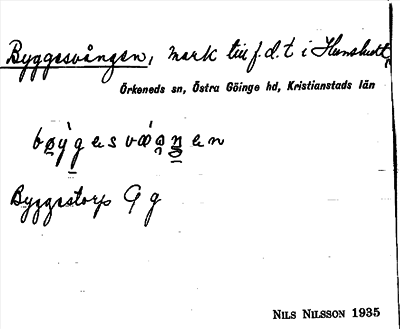 Byggesvången, mark till f.d. t i Hunshult,
Örkeneds sn, Östra Göinge hd, Kristianstads län
bøỳgesvåaŋen
Byggestorp G g
NILS NILSSON 1935